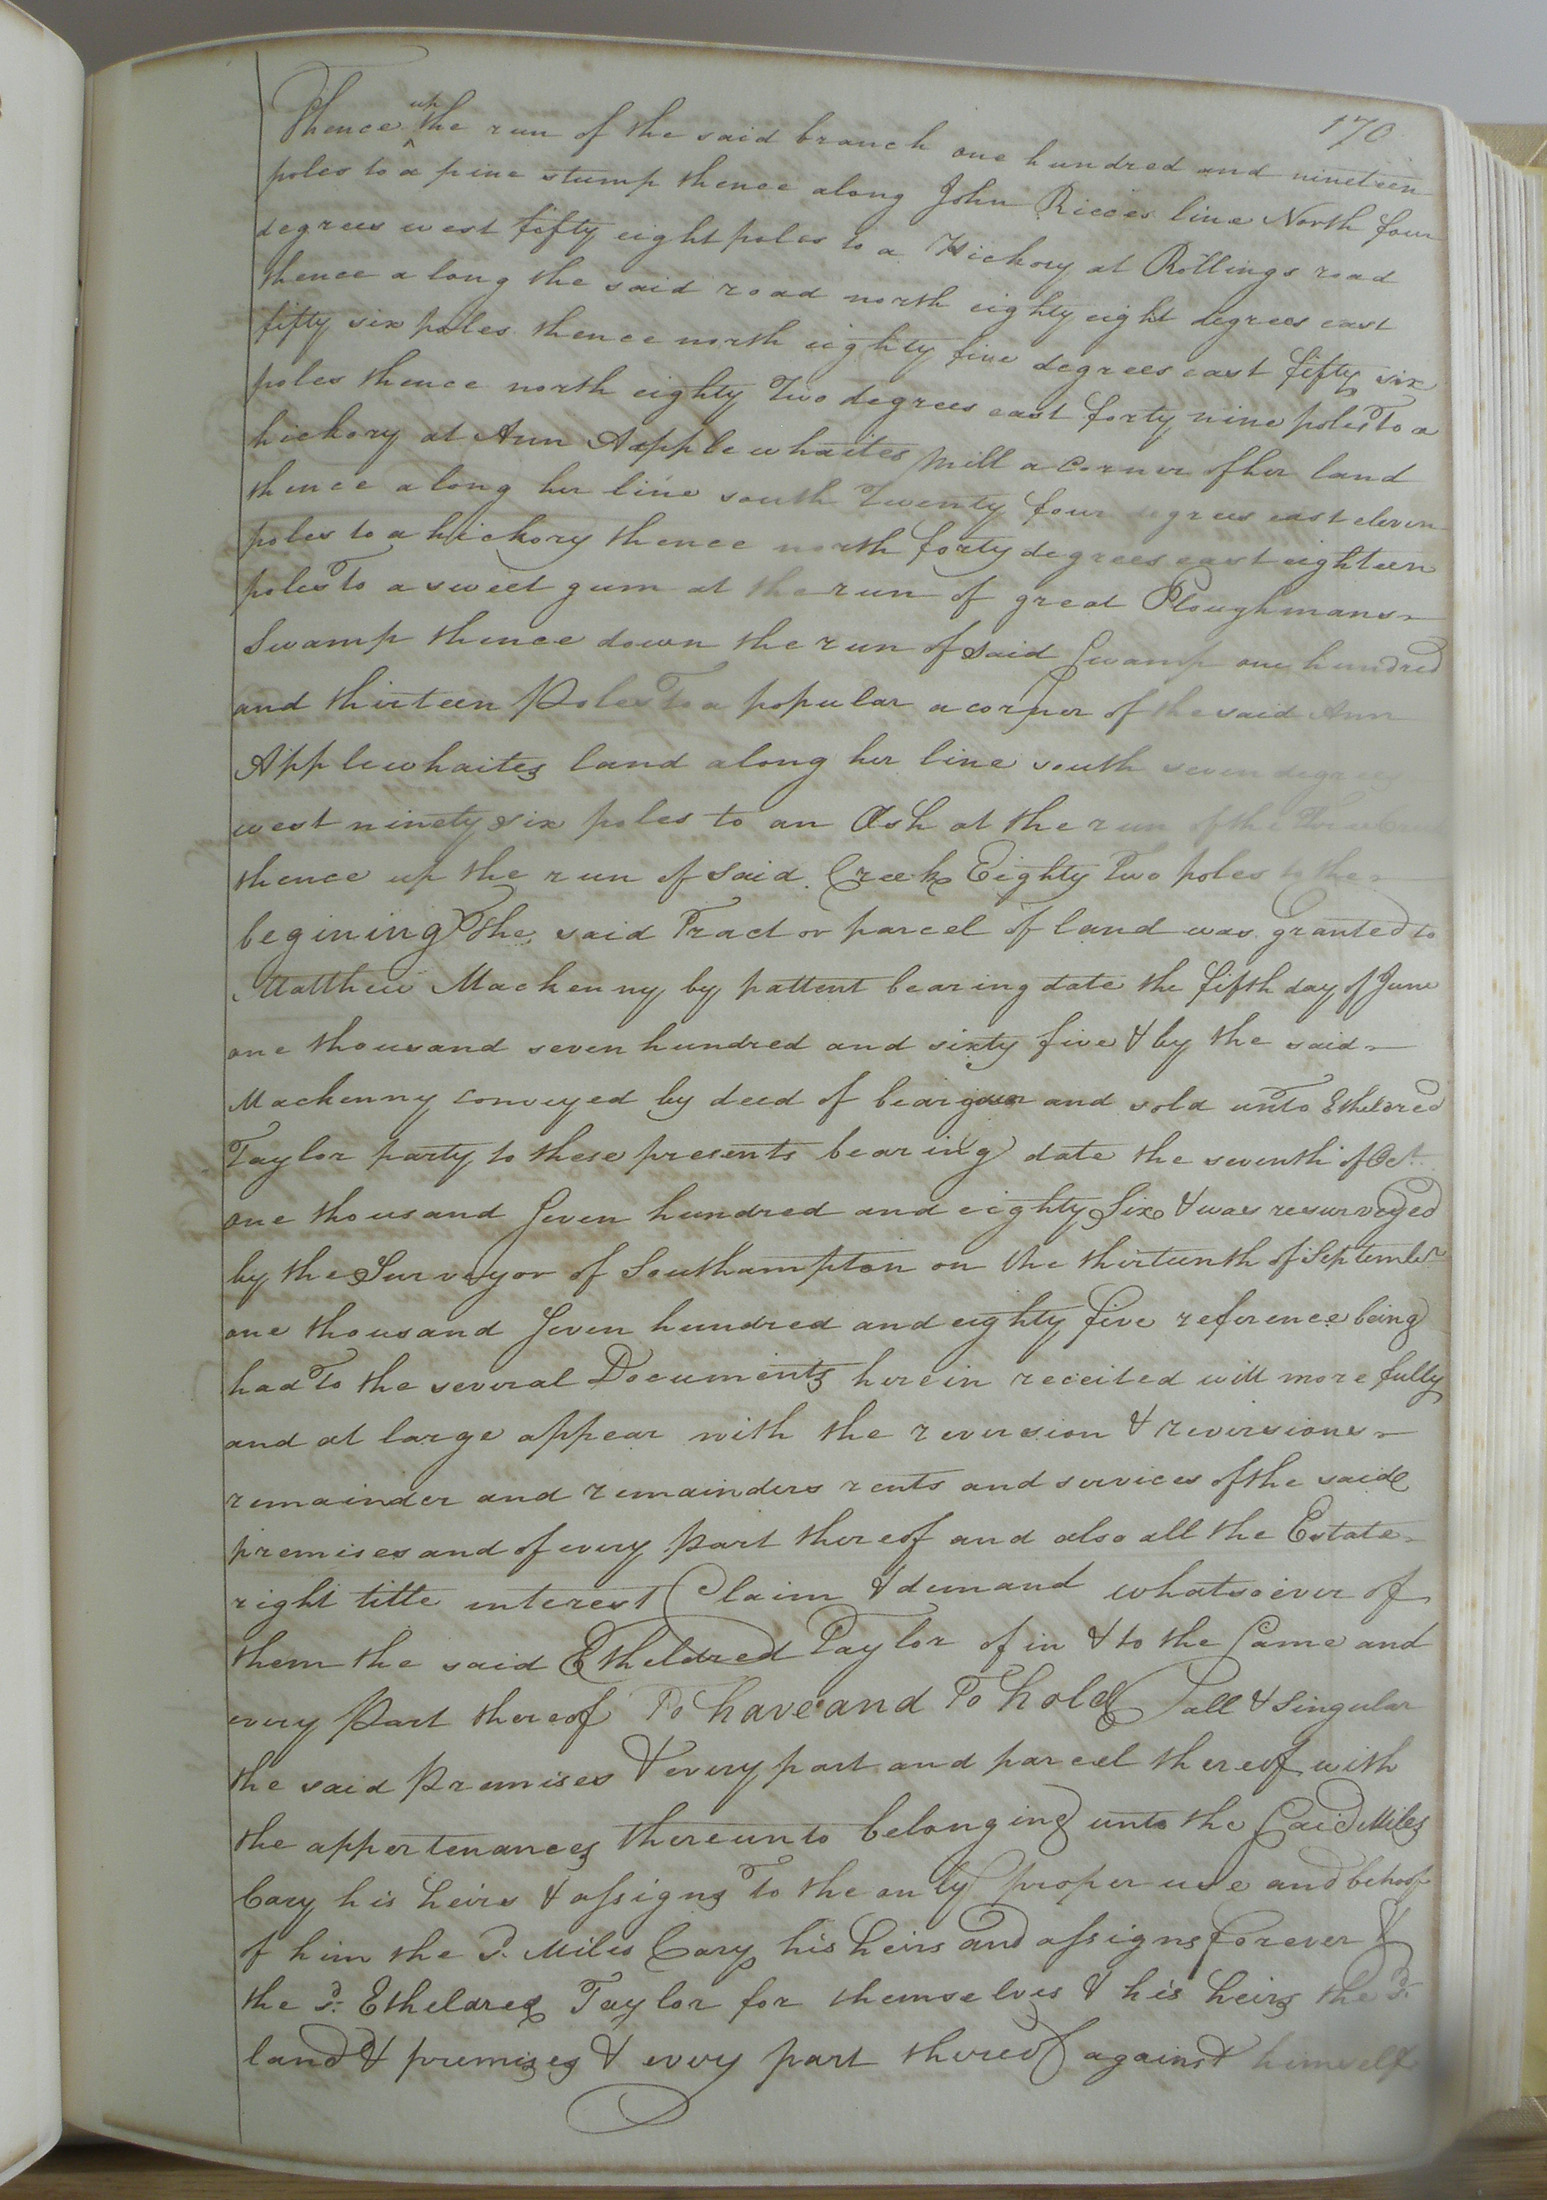 170
Thence up the run of the said branch one hundred and nineteen
poles to a pine stump thence along John Ricces line North four
degrees west fifty eight poles to a Hickory at Rollings road
thence along the said road north eighty eight degrees east
fifty six poles thence north eighty five degrees east fifty six
poles thence north eighty Two degrees east forty nine poles To a
hickory at Ann Applewhaites Mill a corner of her land
thence along her line south Twenty four degrees east eleven
poles to a hickory thence north forty degrees east eighteen
poles To a sweet gum at the run of great Ploughmans
Swamp thence down the run of said Swamp one hundred
and thirteen Poles To a popular a corner of the said Ann
Applewhaites land along her line south seven degrees
west ninety six poles to an Ash at the run of the
thence up the run of said Creek Eighty Two poles to the
begining The said Tract or parcel of land was granted to
Matthew Mackenny by pattent bearing date the fifth day of June
one thousand seven hundred and sixty five & by the said
Mackenny conveyed by deed of beargain and sold unto Etheldred
Taylor party to these presents bearing date the seventh of Oct.
one thousand Seven hundred and eighty Six & was resurveyed
by the Surveyor of Southampton on the thirteenth of September
one thousand Seven hundred and eighty five reference being
had To the several Documents herein receited will more fully
and at large appear with the reversion & reversions
remainder and remainders rents and services of the said
premises and of every Part thereof and also all the Estate
right title interest Claim & demand whatsoever of
them the said Etheldred Taylor of in & to the Same and
every Part thereof To have and To hold all & Singular
the said Premises & every part and parcel thereof with
the appertenances thereunto belonging unto the Said Miles
Cary his heirs & assigns To the only proper use and behoof
of him the Sd. Miles Cary his heirs and assigns forever &
the Sd. Etheldred Taylor for themselves & his heirs the Sd.
land & premises & every part thereof against himself